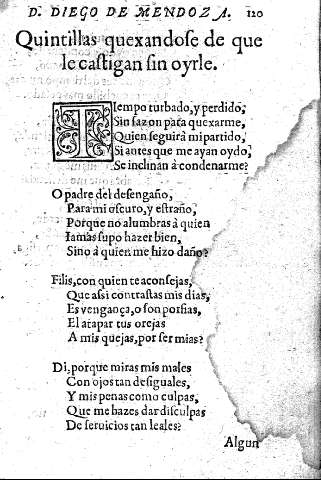 D. DIEGO DE MENDOZA. 120
Quintillas quexandose de que
le castigan sin oyrle.
TIempo turbado, y perdido,
Sin sazon para quexarme,
Quien seguirà mi partido,
Si antes que me ayan oydo,
Se inclinan à condenarme?
O padre del desengaño,
Para mi oscuro, y estraño,
Porque no alumbras à quien
Iamàs supo hazer bien,
Sino à quien me hizo daño?
Filis, con quien te aconsejas,
Que assi contrastas mis dias,
Es vengança, o son porfias,
El atapar tus orejas
A mis quejas, por ser mias?
Di, porque miras mis males
Con ojos tan desiguales,
Y mis penas como culpas,
Que me hazes dar disculpas
De seruicios tan leales?
Algun